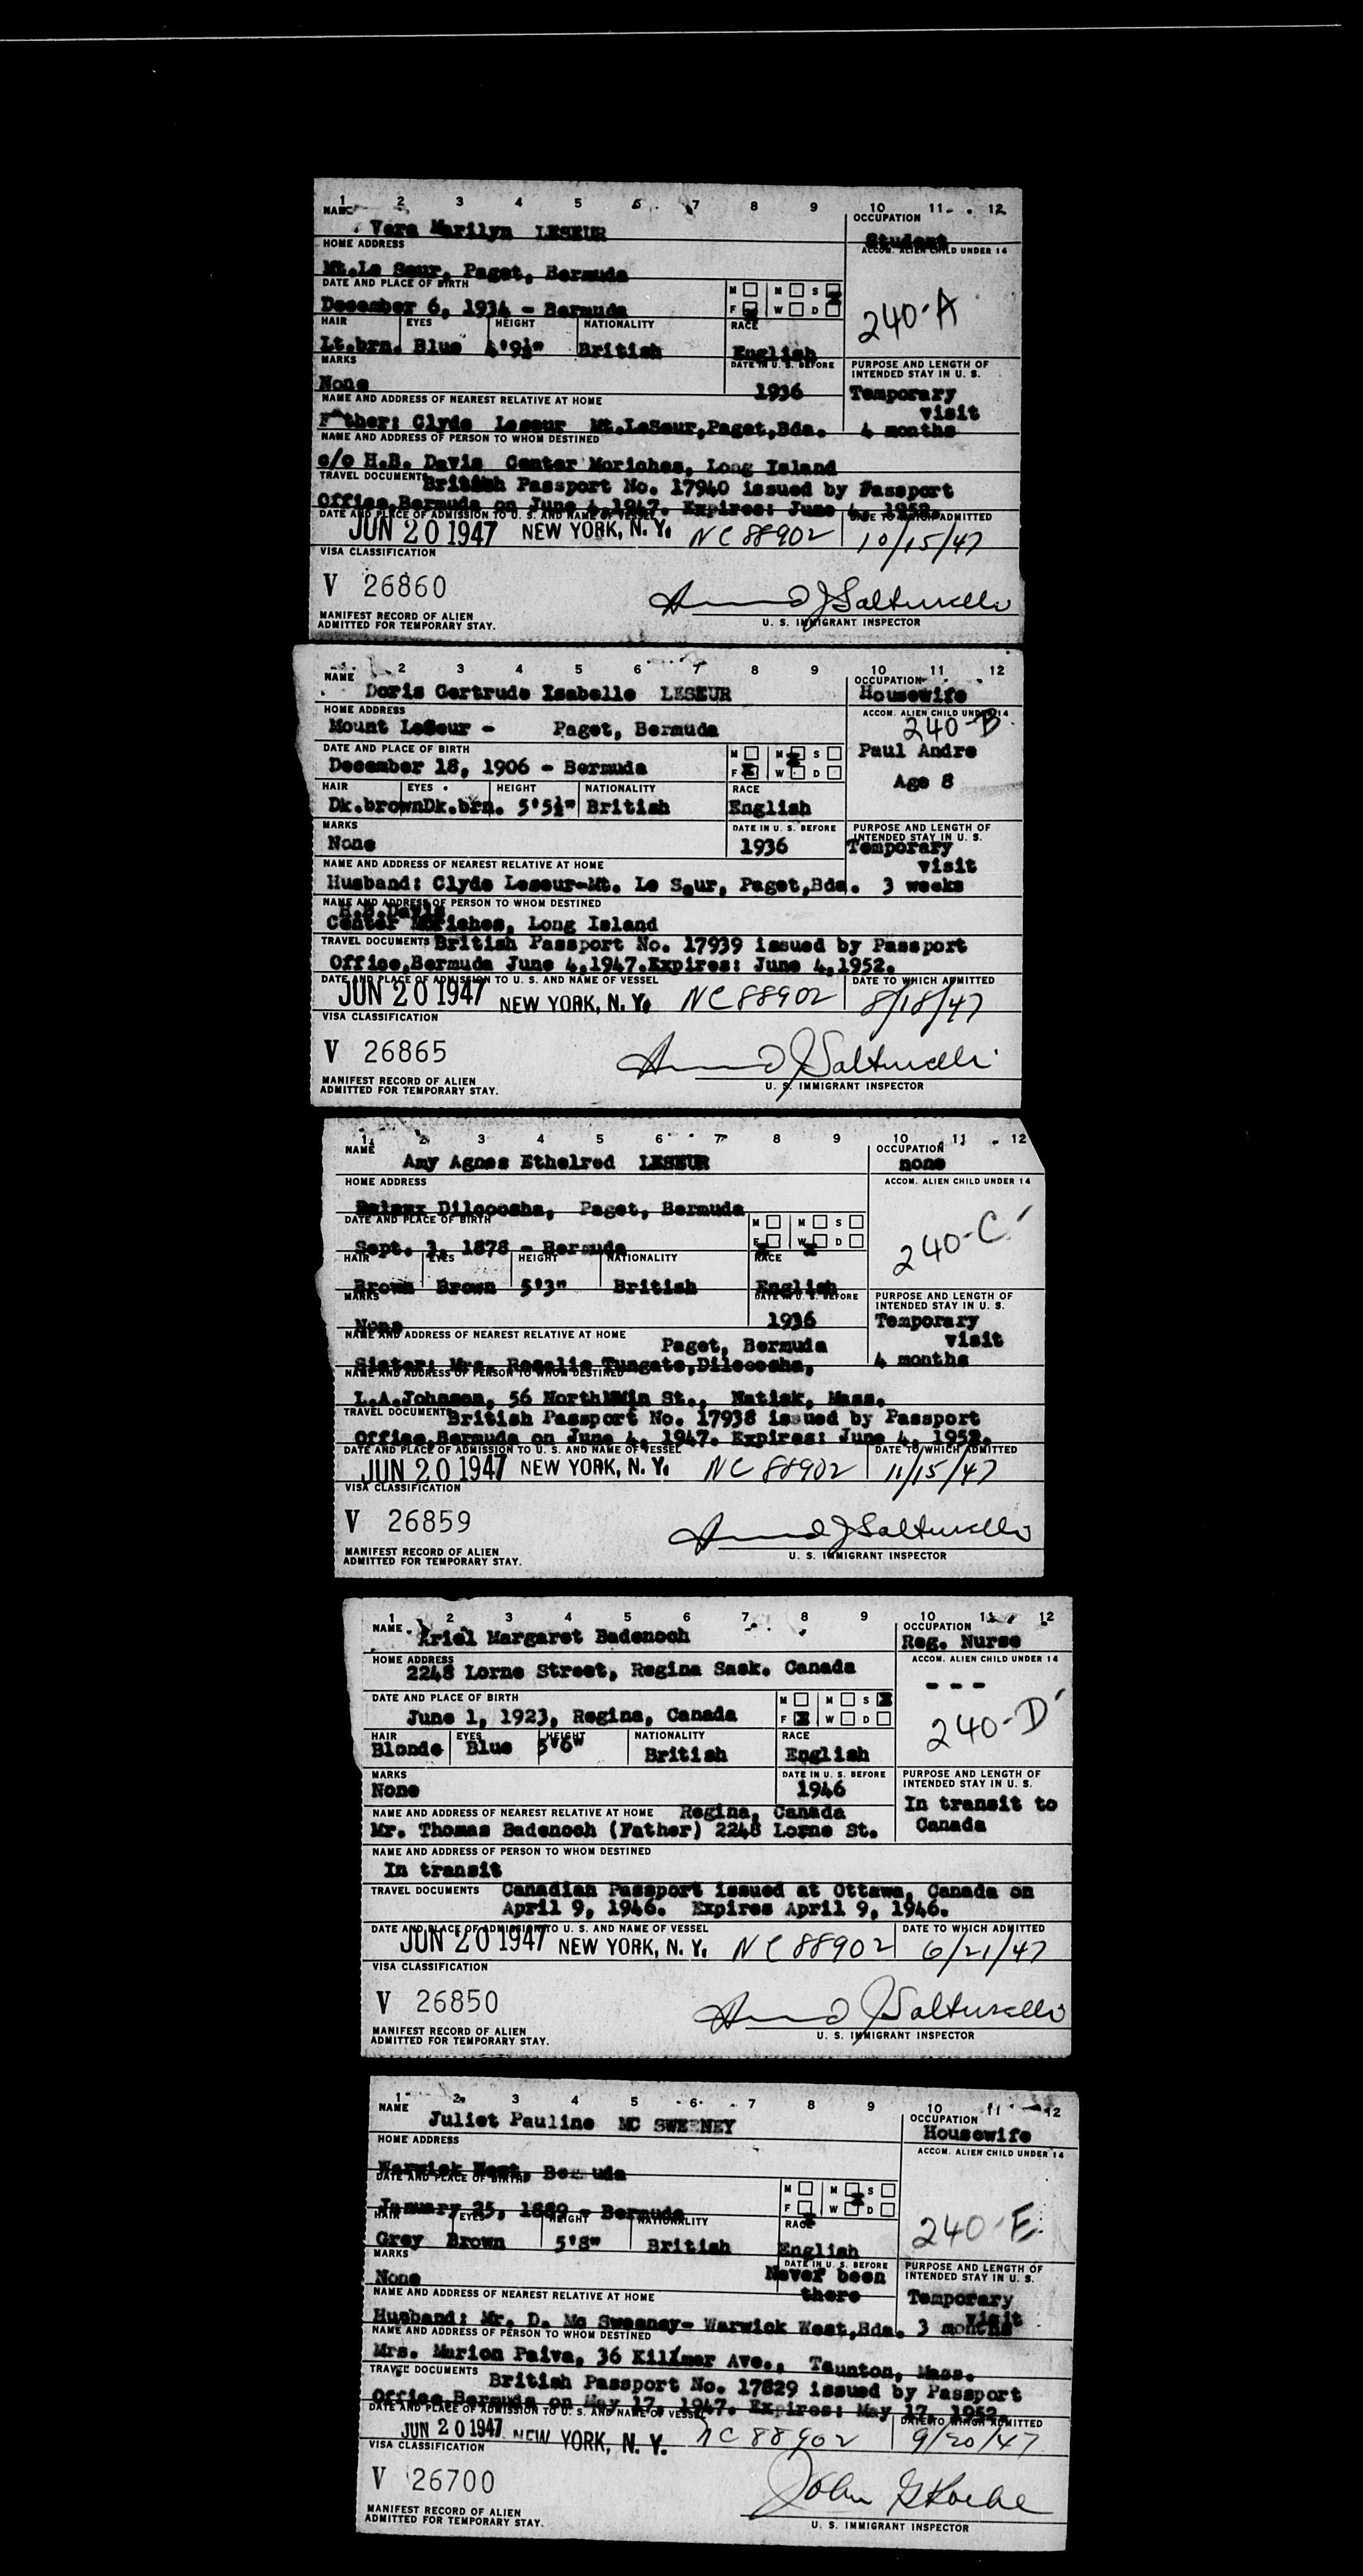 1 2 3 4 5 6 7 8 9 10 11 12
NAME OCCUPATION
Vera Marilyn LESEUR Student
HOME ADDRESS ACCOM. ALIEN CHILD UNDER 14
Mt.Le Seur, Paget, Bermuda
DATE AND PLACE OF BIRTH M M S
December 6, 1934 - Bermuda F W D
240-A
HAIR EYES HEIGHT NATIONALITY RACE
Lt.brn. Blue 4'9½" British English
MARKS DATE IN U. S. BEFORE PURPOSE AND LENGTH OF
INTENDED STAY IN U. S.
None 1936 Temporary
NAME AND ADDRESS OF NEAREST RELATIVE AT HOME visit
Father: Clyde Leseur Mt.LeSeur,Paget,Bda. 4 months
NAME AND ADDRESS OF PERSON TO WHOM DESTINED
c/o H.B. Davis Center Moriches, Long Island
TRAVEL DOCUMENTS British Passport No. 17940 issued by Passport
Office,Bermuda on June 4,1947. Expires: June 4, 1952.
DATE AND PLACE OF ADMISSION TO U. S. AND NAME OF VESSEL DATE TO WHICH ADMITTED
JUN 20 1947 NEW YORK, N. Y. NC 88902 10/15/47
VISA CLASSIFICATION
V 26860
MANIFEST RECORD OF ALIEN
ADMITTED FOR TEMPORARY STAY. U. S. IMMIGRANT INSPECTOR
1 2 3 4 5 6 7 8 9 10 11 12
NAME OCCUPATION
Doris Gertrude Isabelle LESEUR Housewife
HOME ADDRESS ACCOM. ALIEN CHILD UNDER 14
Mount LeSeur - Paget, Bermuda 240-B
DATE AND PLACE OF BIRTH M M S Paul Andre
December 18, 1906 - Bermuda F W D Age 8
HAIR EYES HEIGHT NATIONALITY RACE
Dk.brown Dk.brn. 5'5½" British English
MARKS DATE IN U. S. BEFORE PURPOSE AND LENGTH OF
INTENDED STAY IN U. S.
None 1936 Temporary
NAME AND ADDRESS OF NEAREST RELATIVE AT HOME visit
Husband: Clyde Leseur-Mt. Le Seur, Paget,Bda. 3 weeks
NAME AND ADDRESS OF PERSON TO WHOM DESTINED
H.B.Davis
Center Moriches, Long Island
TRAVEL DOCUMENTS British Passport No. 17939 issued by Passport
Office,Bermuda June 4,1947.Expires: June 4,1952.
DATE AND PLACE OF ADMISSION TO U. S. AND NAME OF VESSEL DATE TO WHICH ADMITTED
JUN 20 1947 NEW YORK, N. Y. NC 88902 8/18/47
VISA CLASSIFICATION
V 26865
MANIFEST RECORD OF ALIEN
ADMITTED FOR TEMPORARY STAY. U. S. IMMIGRANT INSPECTOR
1 2 3 4 5 6 7 8 9 10 11 12
NAME OCCUPATION
Amy Agnes Ethelred LESEUR none
HOME ADDRESS ACCOM. ALIEN CHILD UNDER 14
Dilcoosha, Paget, Bermuda
DATE AND PLACE OF BIRTH M M S
Sept. 3, 1878 - Bermuda F W D
240-C
HAIR EYES HEIGHT NATIONALITY RACE
Brown Brown 5'3" British English
MARKS DATE IN U. S. BEFORE PURPOSE AND LENGTH OF
INTENDED STAY IN U. S.
None 1936 Temporary
NAME AND ADDRESS OF NEAREST RELATIVE AT HOME Paget, Bermuda visit
Sister: Mrs. Rosalie Tungate,Dilcoosha, 4 months
NAME AND ADDRESS OF PERSON TO WHOM DESTINED
L.A.Johnson, 56 North Main St., Natick, Mass.
TRAVEL DOCUMENTS British Passport No. 17938 issued by Passport
Office,Bermuda on June 4, 1947. Expires: June 4, 1952.
DATE AND PLACE OF ADMISSION TO U. S. AND NAME OF VESSEL DATE TO WHICH ADMITTED
JUN 20 1947 NEW YORK, N. Y. NC 88902 11/15/47
VISA CLASSIFICATION
V 26859
MANIFEST RECORD OF ALIEN
ADMITTED FOR TEMPORARY STAY. U. S. IMMIGRANT INSPECTOR
1 2 3 4 5 6 7 8 9 10 11 12
NAME OCCUPATION
Ariel Margaret Badenoch Reg. Nurse
HOME ADDRESS ACCOM. ALIEN CHILD UNDER 14
2248 Lorne Street, Regina Sask. Canada - - -
DATE AND PLACE OF BIRTH M M S
June 1, 1923, Regina, Canada F W D
240-D
HAIR EYES HEIGHT NATIONALITY RACE
Blonde Blue 5'6" British English
MARKS DATE IN U. S. BEFORE PURPOSE AND LENGTH OF
INTENDED STAY IN U. S.
None 1946 In transit to
NAME AND ADDRESS OF NEAREST RELATIVE AT HOME Regina, Canada
Mr. Thomas Badenoch (Father) 2248 Lorne St. Canada
NAME AND ADDRESS OF PERSON TO WHOM DESTINED
In transit
TRAVEL DOCUMENTS Canadian Passport issued at Ottawa, Canada on
April 9, 1946. Expires April 9, 1946.
DATE AND PLACE OF ADMISSION TO U. S. AND NAME OF VESSEL DATE TO WHICH ADMITTED
JUN 20 1947 NEW YORK, N. Y. NC 88902 6/21/47
VISA CLASSIFICATION
V 26850
MANIFEST RECORD OF ALIEN
ADMITTED FOR TEMPORARY STAY. U. S. IMMIGRANT INSPECTOR
1 2 3 4 5 6 7 8 9 10 11 12
NAME OCCUPATION
Juliet Pauline MC SWEENEY Housewife
HOME ADDRESS ACCOM. ALIEN CHILD UNDER 14
Warwick West, Bermuda
DATE AND PLACE OF BIRTH M M S
January 25, 1889 - Bermuda F W D
240-E
HAIR EYES HEIGHT NATIONALITY RACE
Grey Brown 5'8" British English
MARKS DATE IN U. S. BEFORE PURPOSE AND LENGTH OF
INTENDED STAY IN U. S.
None Never been
NAME AND ADDRESS OF NEAREST RELATIVE AT HOME there Temporary
visit
Husband: Mr. D. Mc Sweeney- Warwick West,Bda. 3 months
NAME AND ADDRESS OF PERSON TO WHOM DESTINED
Mrs. Marion Paiva, 36 Kilmer Ave., Taunton, Mass.
TRAVEL DOCUMENTS British Passport No. 17829 issued by Passport
Office,Bermuda on May 17, 1947. Expires: May 17, 1952.
DATE AND PLACE OF ADMISSION TO U. S. AND NAME OF VESSEL DATE TO WHICH ADMITTED
JUN 20 1947 NEW YORK, N. Y. NC 88902 9/20/47
VISA CLASSIFICATION
V 26700
John
MANIFEST RECORD OF ALIEN
ADMITTED FOR TEMPORARY STAY. U. S. IMMIGRANT INSPECTOR